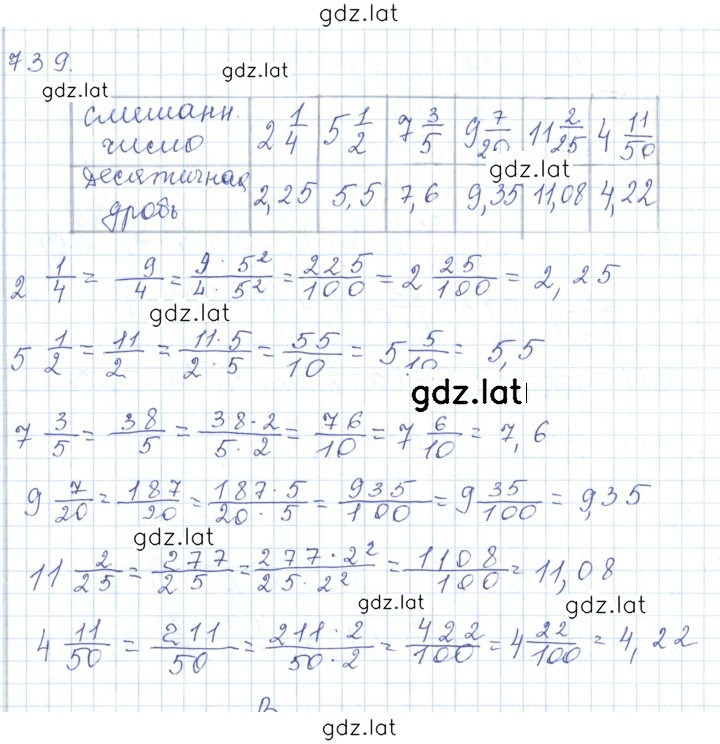 gdz.lat
739.
gdz.lat
gdz.lat
смешанн. число 2 1/4 5 1/2 7 3/5 9 7/20 11 2/25 4 11/50
gdz.lat
десятичная дробь 2,25 5,5 7,6 9,35 11,08 4,22
2 1/4 = 9/4 = 9·5²/4·5² = 225/100 = 2 25/100 = 2,25
gdz.lat
5 1/2 = 11/2 = 11·5/2·5 = 55/10 = 5 5/10 = 5,5
gdz.lat
7 3/5 = 38/5 = 38·2/5·2 = 76/10 = 7 6/10 = 7,6
9 7/20 = 187/20 = 187·5/20·5 = 935/100 = 9 35/100 = 9,35
gdz.lat
11 2/25 = 277/25 = 277·2²/25·2² = 1108/100 = 11,08
gdz.lat
gdz.lat
4 11/50 = 211/50 = 211·2/50·2 = 422/100 = 4 22/100 = 4,22
gdz.lat